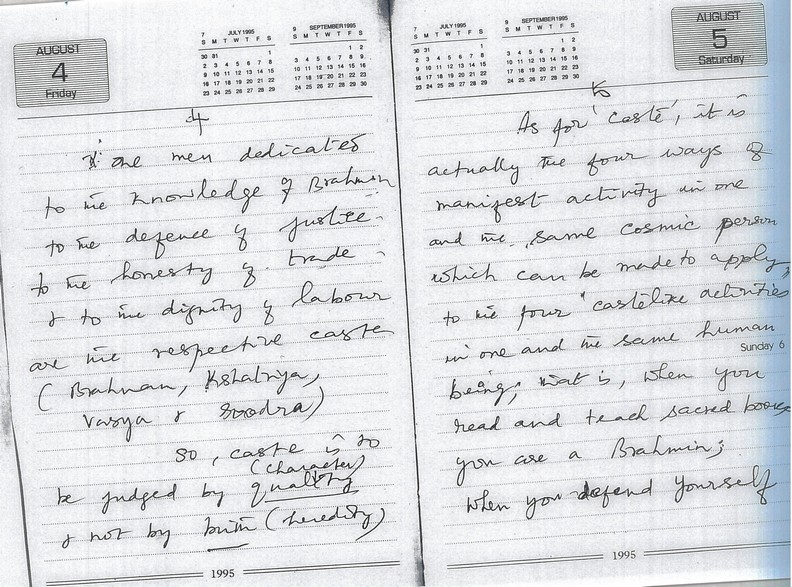 AUGUST
4
Friday
7 JULY 1995
S M T W T F S
30 31 1
2 3 4 5 6 7 8
9 10 11 12 13 14 15
16 17 18 19 20 21 22
23 24 25 26 27 28 29
9 SEPTEMBER 1995
S M T W T F S
1 2
3 4 5 6 7 8 9
10 11 12 13 14 15 16
17 18 19 20 21 22 23
24 25 26 27 28 29 30
4
one men dedicated
to the knowledge of Brahman
to the defence of justice
to the honesty of trade
& to the dignity of labour
are the respective caste
(Brahman, Kshatriya,
Vasya & Soodra)
So, caste is to
(character)
be judged by quality
& not by birth (heredity)
1995
7 JULY 1995
S M T W T F S
30 31 1
2 3 4 5 6 7 8
9 10 11 12 13 14 15
16 17 18 19 20 21 22
23 24 25 26 27 28 29
9 SEPTEMBER 1995
S M T W T F S
1 2
3 4 5 6 7 8 9
10 11 12 13 14 15 16
17 18 19 20 21 22 23
24 25 26 27 28 29 30
AUGUST
5
Saturday
As for 'caste', it is
actually the four ways of
manifest activity in one
and the same cosmic person
which can be made to apply
to the four "castelike activities
in one and the same human
Sunday 6
being; that is, when you
read and teach sacred books
you are a Brahmin;
when you defend yourself
1995